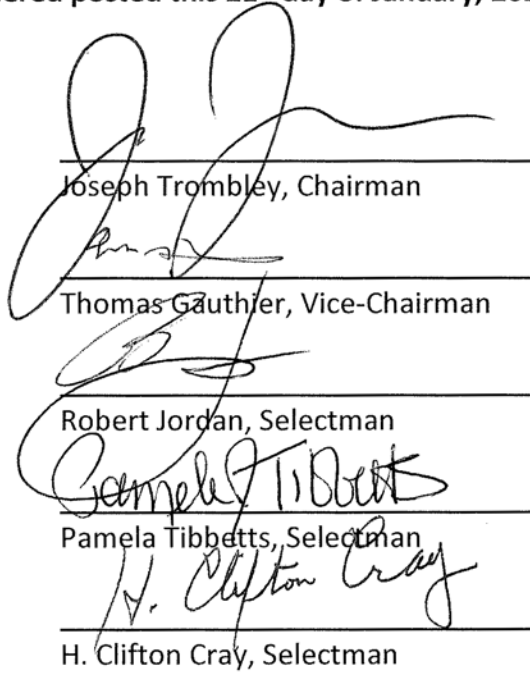 posted this day of January,
Joseph Trombley, Chairman
Thomas Gauthier, Vice-Chairman
Robert Jordan, Selectman
Pamela J Tibbetts
Pamela Tibbetts, Selectman
H. Clifton Cray
H. Clifton Cray, Selectman